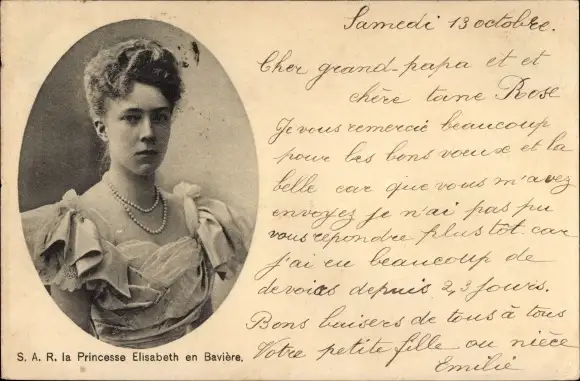 Samedi 13 octobre.
Cher grand-papa et et
chère tane Rose
Je vous remercie beaucoup
pour les bons vœux et la
belle car que vous m'avez
envoyez je n'ai pas pu
vous répondre plus tôt car
j'ai eu beaucoup de
devoirs depuis 2,3 jours.
Bons baisers de tous à tous
Votre petite fille ou nièce
Emilie
S. A. R. la Princesse Elisabeth en Bavière.